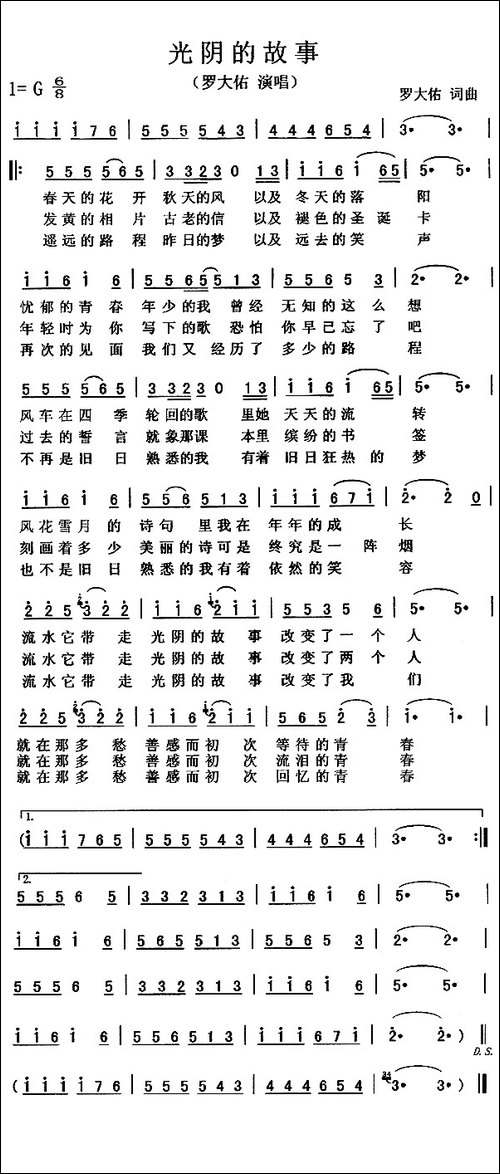 光阴的故事
（罗大佑 演唱）
1= G 6/8
罗大佑 词曲
i i i i 7 6 | 5 5 5 5 4 3 | 4 4 4 6 5 4 | 3· 3· |
‖: 5 5 5 5 6 5 | 3 3 2 3 0 1 3 | i i 6 i 6 5 | 5· 5· |
春天的花 开 秋天的风 以及 冬天的落 阳
发黄的相 片 古老的信 以及 褪色的圣诞 卡
遥远的路 程 昨日的梦 以及 远去的笑 声
i i 6 i 6 | 5 5 6 5 5 1 3 | 5 5 6 5 3 | 2· 2· |
忧郁的青 春 年少的我 曾经 无知的这 么 想
年轻时为 你 写下的歌 恐怕 你早已忘 了 吧
再次的见 面 我们又 经历了 多少的路 程
5 5 5 5 6 5 | 3 3 2 3 0 1 3 | i i 6 i 6 5 | 5· 5· |
风车在四 季 轮回的歌 里她 天天的流 转
过去的誓 言 就象那课 本里 缤纷的书 签
不再是旧 日 熟悉的我 有着 旧日狂热的 梦
i i 6 i 6 | 5 5 6 5 1 3 | i i i 6 7 i | 2· 2 0 |
风花雪月 的 诗句 里我在 年年的成 长
刻画着多 少 美丽的诗可是 终究是一 阵 烟
也不是旧 日 熟悉的我有着 依然的笑 容
2 2 5 3 2 2 | i i 6 2 i i | 5 5 3 5 6 | 5· 5· |
流水它带 走 光阴的故 事 改变了一 个 人
流水它带 走 光阴的故 事 改变了两 个 人
流水它带 走 光阴的故 事 改变了我 们
2 2 5 3 2 2 | i i 6 2 i i | 5 6 5 2 3 | i· i· |
就在那多 愁 善感而初 次 等待的青 春
就在那多 愁 善感而初 次 流泪的青 春
就在那多 愁 善感而初 次 回忆的青 春
1.
(i i i 7 6 5 | 5 5 5 5 4 3 | 4 4 4 6 5 4 | 3· 3· :‖
2.
5 5 5 6 5 | 3 3 2 3 1 3 | i i 6 i 6 | 5· 5· |
i i 6 i 6 | 5 5 6 5 1 3 | 5 5 6 5 3 | 2· 2· |
5 5 5 6 5 | 3 3 2 3 1 3 | i i 6 i 6 | 5· 5· |
i i 6 i 6 | 5 5 6 5 1 3 | i i i 6 7 i | 2· 2· ) ‖
D.S.
( i i i i 7 6 | 5 5 5 5 4 3 | 4 4 4 6 5 4 | 3· 3· ) ‖